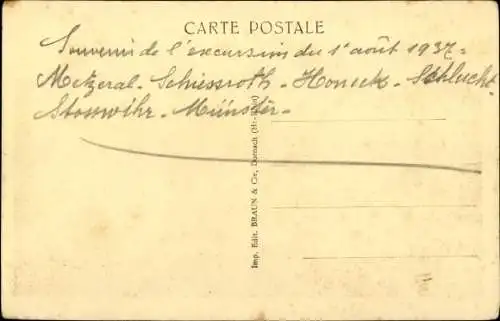 CARTE POSTALE
Souvenir de l'excursion du 1er août 1937 -
Metzeral - Schiessroth - Honeck - Schlucht
Stosswihr - Münster -
Imp. Edit. BRAUN & Cie, Dornach (Ht-Rhin)